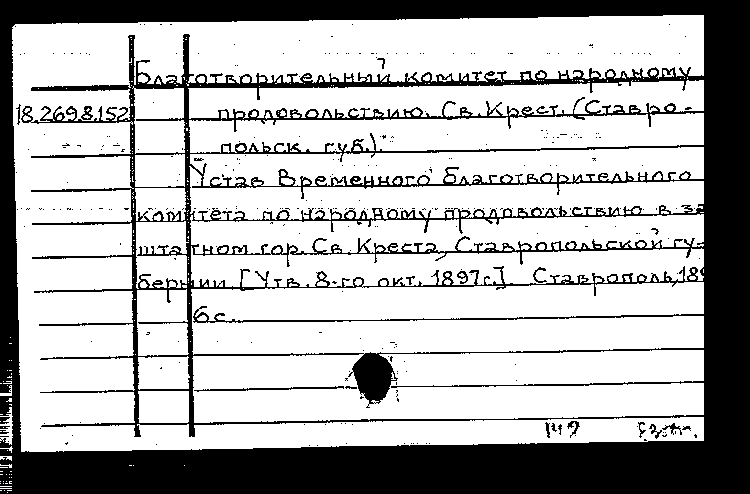 Благотворительный комитет по народному
18.269.8.152 продовольствию. Св. Крест. (Ставро-
польск. губ.).
Устав Временного благотворительного
комитета по народному продовольствию в за
штатном гор. Св. Креста, Ставропольской гу-
бернии [Утв. 8-го окт. 1897г.]. Ставрополь, 189
6с.
149